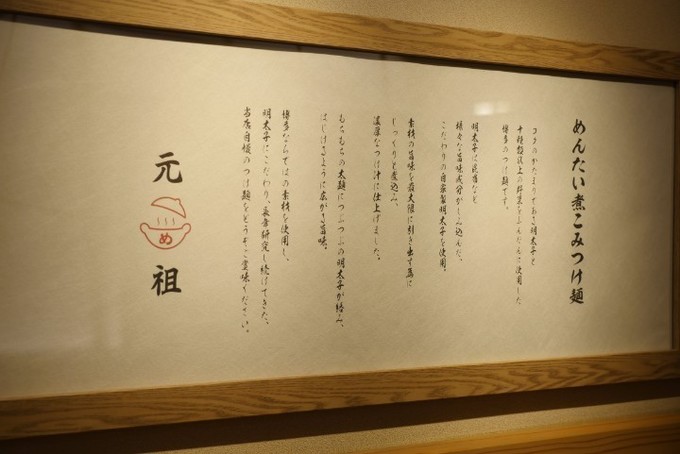 めんたい煮こみつけ麺
コクのかたまりである明太子と
十種類以上の野菜をふんだんに使用した
博多のつけ麺です。
明太子に昆布など
様々な旨味成分がしみ込んだ、
こだわりの自家製明太子を使用。
素材の旨味を最大限に引き出す為に
じっくりと煮込み、
濃厚なつけ汁に仕上げました。
もちもちの太麺につぶつぶの明太子が絡み、
はじけるように広がる旨味。
博多ならではの素材を使用し、
明太子にこだわり、長年研究し続けてきた、
当店自慢のつけ麺をどうぞご賞味ください。
元
め
祖